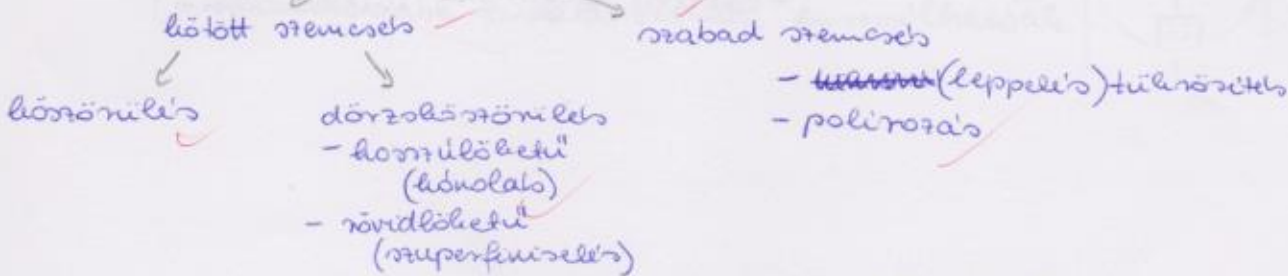 kötött szemcsés
szabad szemcsés
köszörülés
dörzsköszörülés
- hosszúlöketű
(hónolás)
- rövidlöketű
(szuperfiniselés)
- (leppelés) tükrösítés
- polírozás